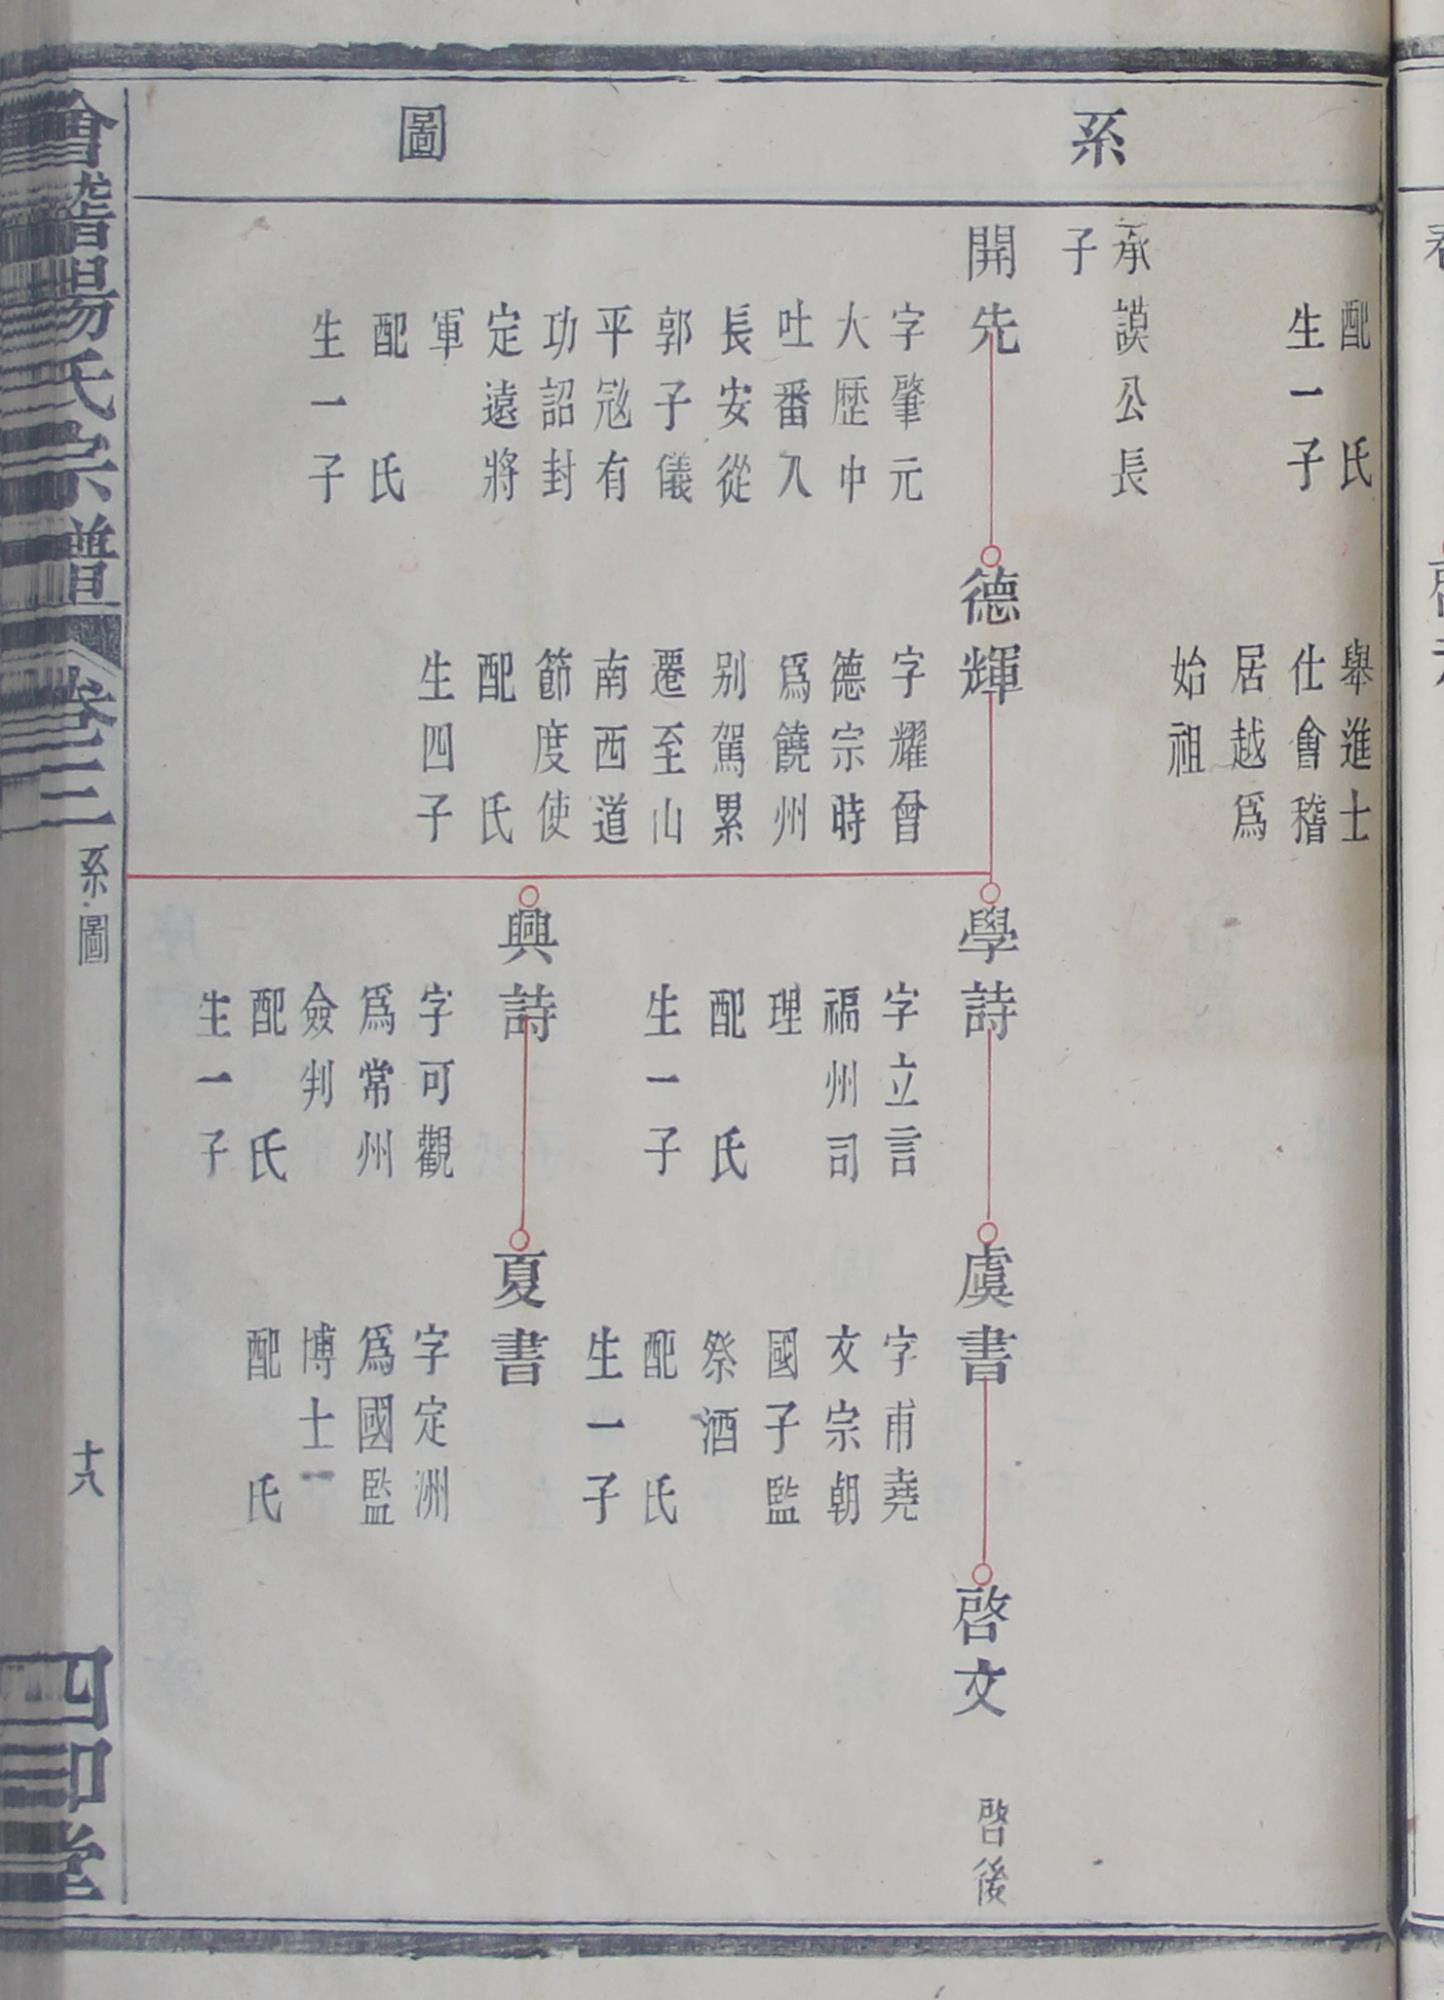 系圖
配 氏
生一子
舉進士
仕會稽
居越爲
始祖
承謨公長
子
開先
字肇元
大歷中
吐番入
長安從
郭子儀
平寇有
功詔封
定遠將
軍
配 氏
生一子
德輝
字耀曾
德宗時
爲饒州
别駕累
遷至山
南西道
節度使
配 氏
生四子
學詩
字立言
福州司
理
配 氏
生一子
興詩
字可觀
爲常州
僉判
配 氏
生一子
虞書
字甫堯
文宗朝
國子監
祭酒
配 氏
生一子
夏書
字定洲
爲國監
博士
配 氏
啓文
啓後
會稽陽氏宗譜
卷三
系圖
十八
四印堂